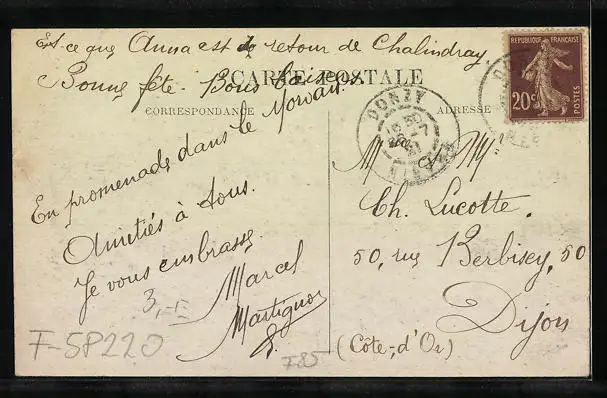 Est-ce que Anna est de retour de Chalindray
Bonne fête. Bons baisers.
CARTE POSTALE
CORRESPONDANCE
ADRESSE
En promenade dans le Morvan.
Amitiés à tous.
Je vous embrasse.
Marcel
Martignon
RÉPUBLIQUE FRANÇAISE
20c
POSTES
DONZY
NIÈVRE
Mr et Me
Ch. Lucotte.
50, rue Berbisey, 50
Dijon
(Côte-d'Or)
3,-
F-58220
F85